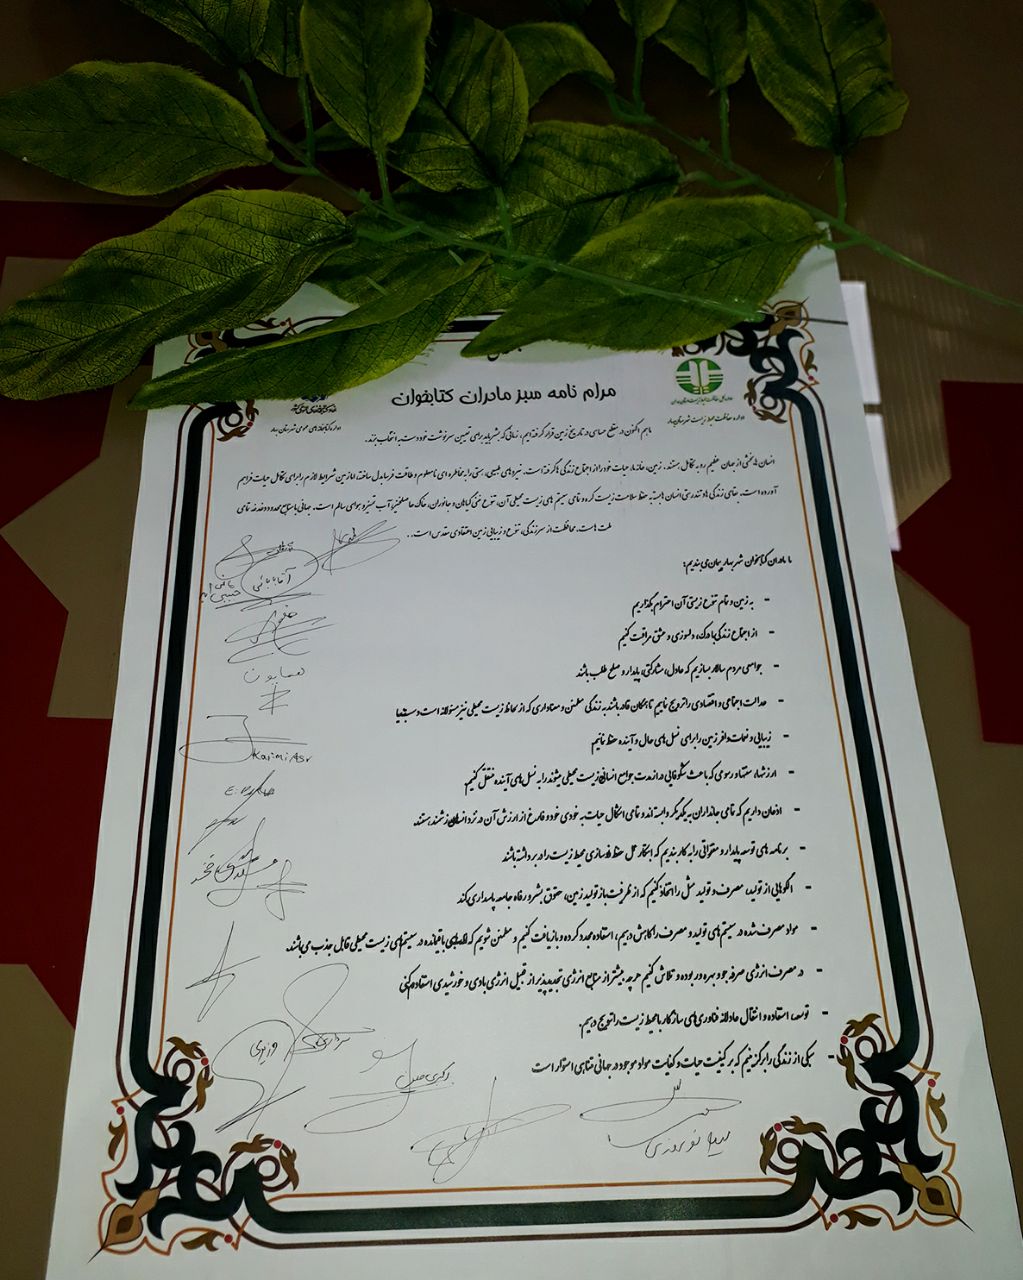 مرام نامه سبز مادران کتابخوان
اداره کتابخانه های عمومی شهرستان بهار
اداره حفاظت محیط زیست شهرستان بهار
ما هم اکنون در مقطع حساسی در تاریخ زمین قرار گرفته ایم، زمانی که بشر باید برای تعیین سرنوشت خود دست به انتخاب بزند.
انسان ها بخشی از جهان عظیم رو به تکامل هستند. زمین، خانه ما، حیات خود را از اجتماع زندگی ها گرفته است. نیروهای طبیعی، هستی را به مخاطره ای نامعلوم و طاقت فرسا بدل ساخته، اما زمین شرایط لازم را برای تکامل حیات فراهم
آورده است. بقای زندگی ها و تندرستی انسان ها بسته به حفظ سلامت زیست کره و تمامی سیستم های زیست محیطی آن، تنوع غنی گیاهان و جانوران، خاک حاصلخیز، آب تمیز و هوای سالم است. جهانی با منابع محدود دغدغه تمامی
ملت هاست. محافظت از سرزندگی، تنوع و زیبایی زمین اعتقادی مقدس است..
ما مادران کتابخوان شهر بهار پیمان می بندیم:
- به زمین و تمام تنوع زیستی آن احترام بگذاریم
- از اجتماع زندگی با درک، دلسوزی و عشق مراقبت کنیم
- جوامعی مردم سالار بسازیم که عادل، مشارکتی، پایدار و صلح طلب باشند
- عدالت اجتماعی و اقتصادی را ترویج نماییم تا همگان قادر باشند به زندگی مطمئن و معناداری که از لحاظ زیست محیطی نیز مسئولانه است دست یابند
- زیبایی و نعمات وافر زمین را برای نسل های حال و آینده حفظ نمائیم
- ارزشها، سنتها و رسومی که باعث شکوفایی دراز مدت جوامع انسانی و زیست محیطی میشوند را به نسل های آینده منتقل کنیم.
- اذعان داریم که تمامی جانداران به یکدیگر وابسته اند و تمامی اشکال حیات به خودی خود و فارغ از ارزش آن در نزد انسان ارزشمند هستند.
- برنامه های توسعه پایدار و مقرراتی را به کار بندیم که ابتکار عمل حفظ و بهسازی محیط زیست را در بر داشته باشند
- الگوهایی از تولید، مصرف و تولید مثل را اتخاذ کنیم که از ظرفیت باز تولید زمین، حقوق بشر و رفاه جامعه پاسداری کند
- مواد مصرف شده در سیستم های تولید و مصرف را کاهش دهیم، استفاده مجدد کرده و بازیافت کنیم و مطمئن شویم که زباله های باقیمانده در سیستم های زیست محیطی قابل جذب می باشند.
- در مصرف انرژی صرفه جو و بهره ور بوده و تلاش کنیم هر چه بیشتر از منابع انرژی تجدیدپذیر از قبیل انرژی بادی و خورشیدی استفاده کنیم
- توسعه، استفاده و انتقال عادلانه فناوری های سازگار با محیط زیست را ترویج دهیم.
- سبکی از زندگی را برگزینیم که بر کیفیت حیات و کفایت مواد موجود در جهانی متناهی استوار است
آقابابائی
همایون
Karimi Asr
وزیری